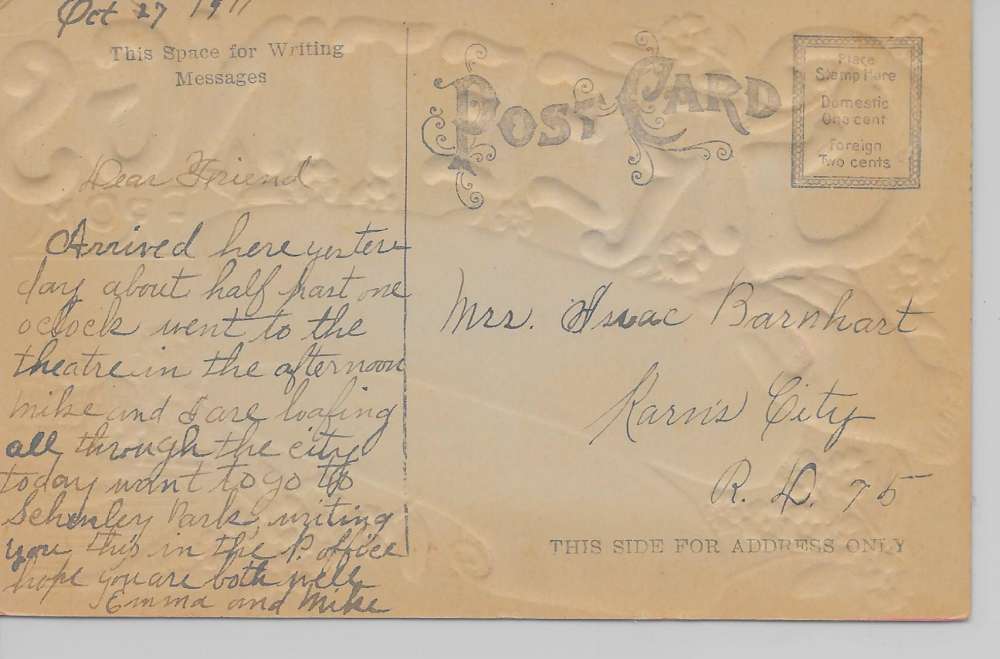 Oct 27 1911
This Space for Writing
Messages
POST CARD
Place
Stamp Here
Domestic
One cent
Foreign
Two cents
Dear Friend
Arrived here yester
day about half past one
oclock went to the
theatre in the afternoon
Mike and I are loafing
all through the city
today want to go to
Schenley Park, writing
you this in the P. office
hope you are both well
Emma and Mike
Mrs. Isaac Barnhart
Karns City
R. D. 75
THIS SIDE FOR ADDRESS ONLY